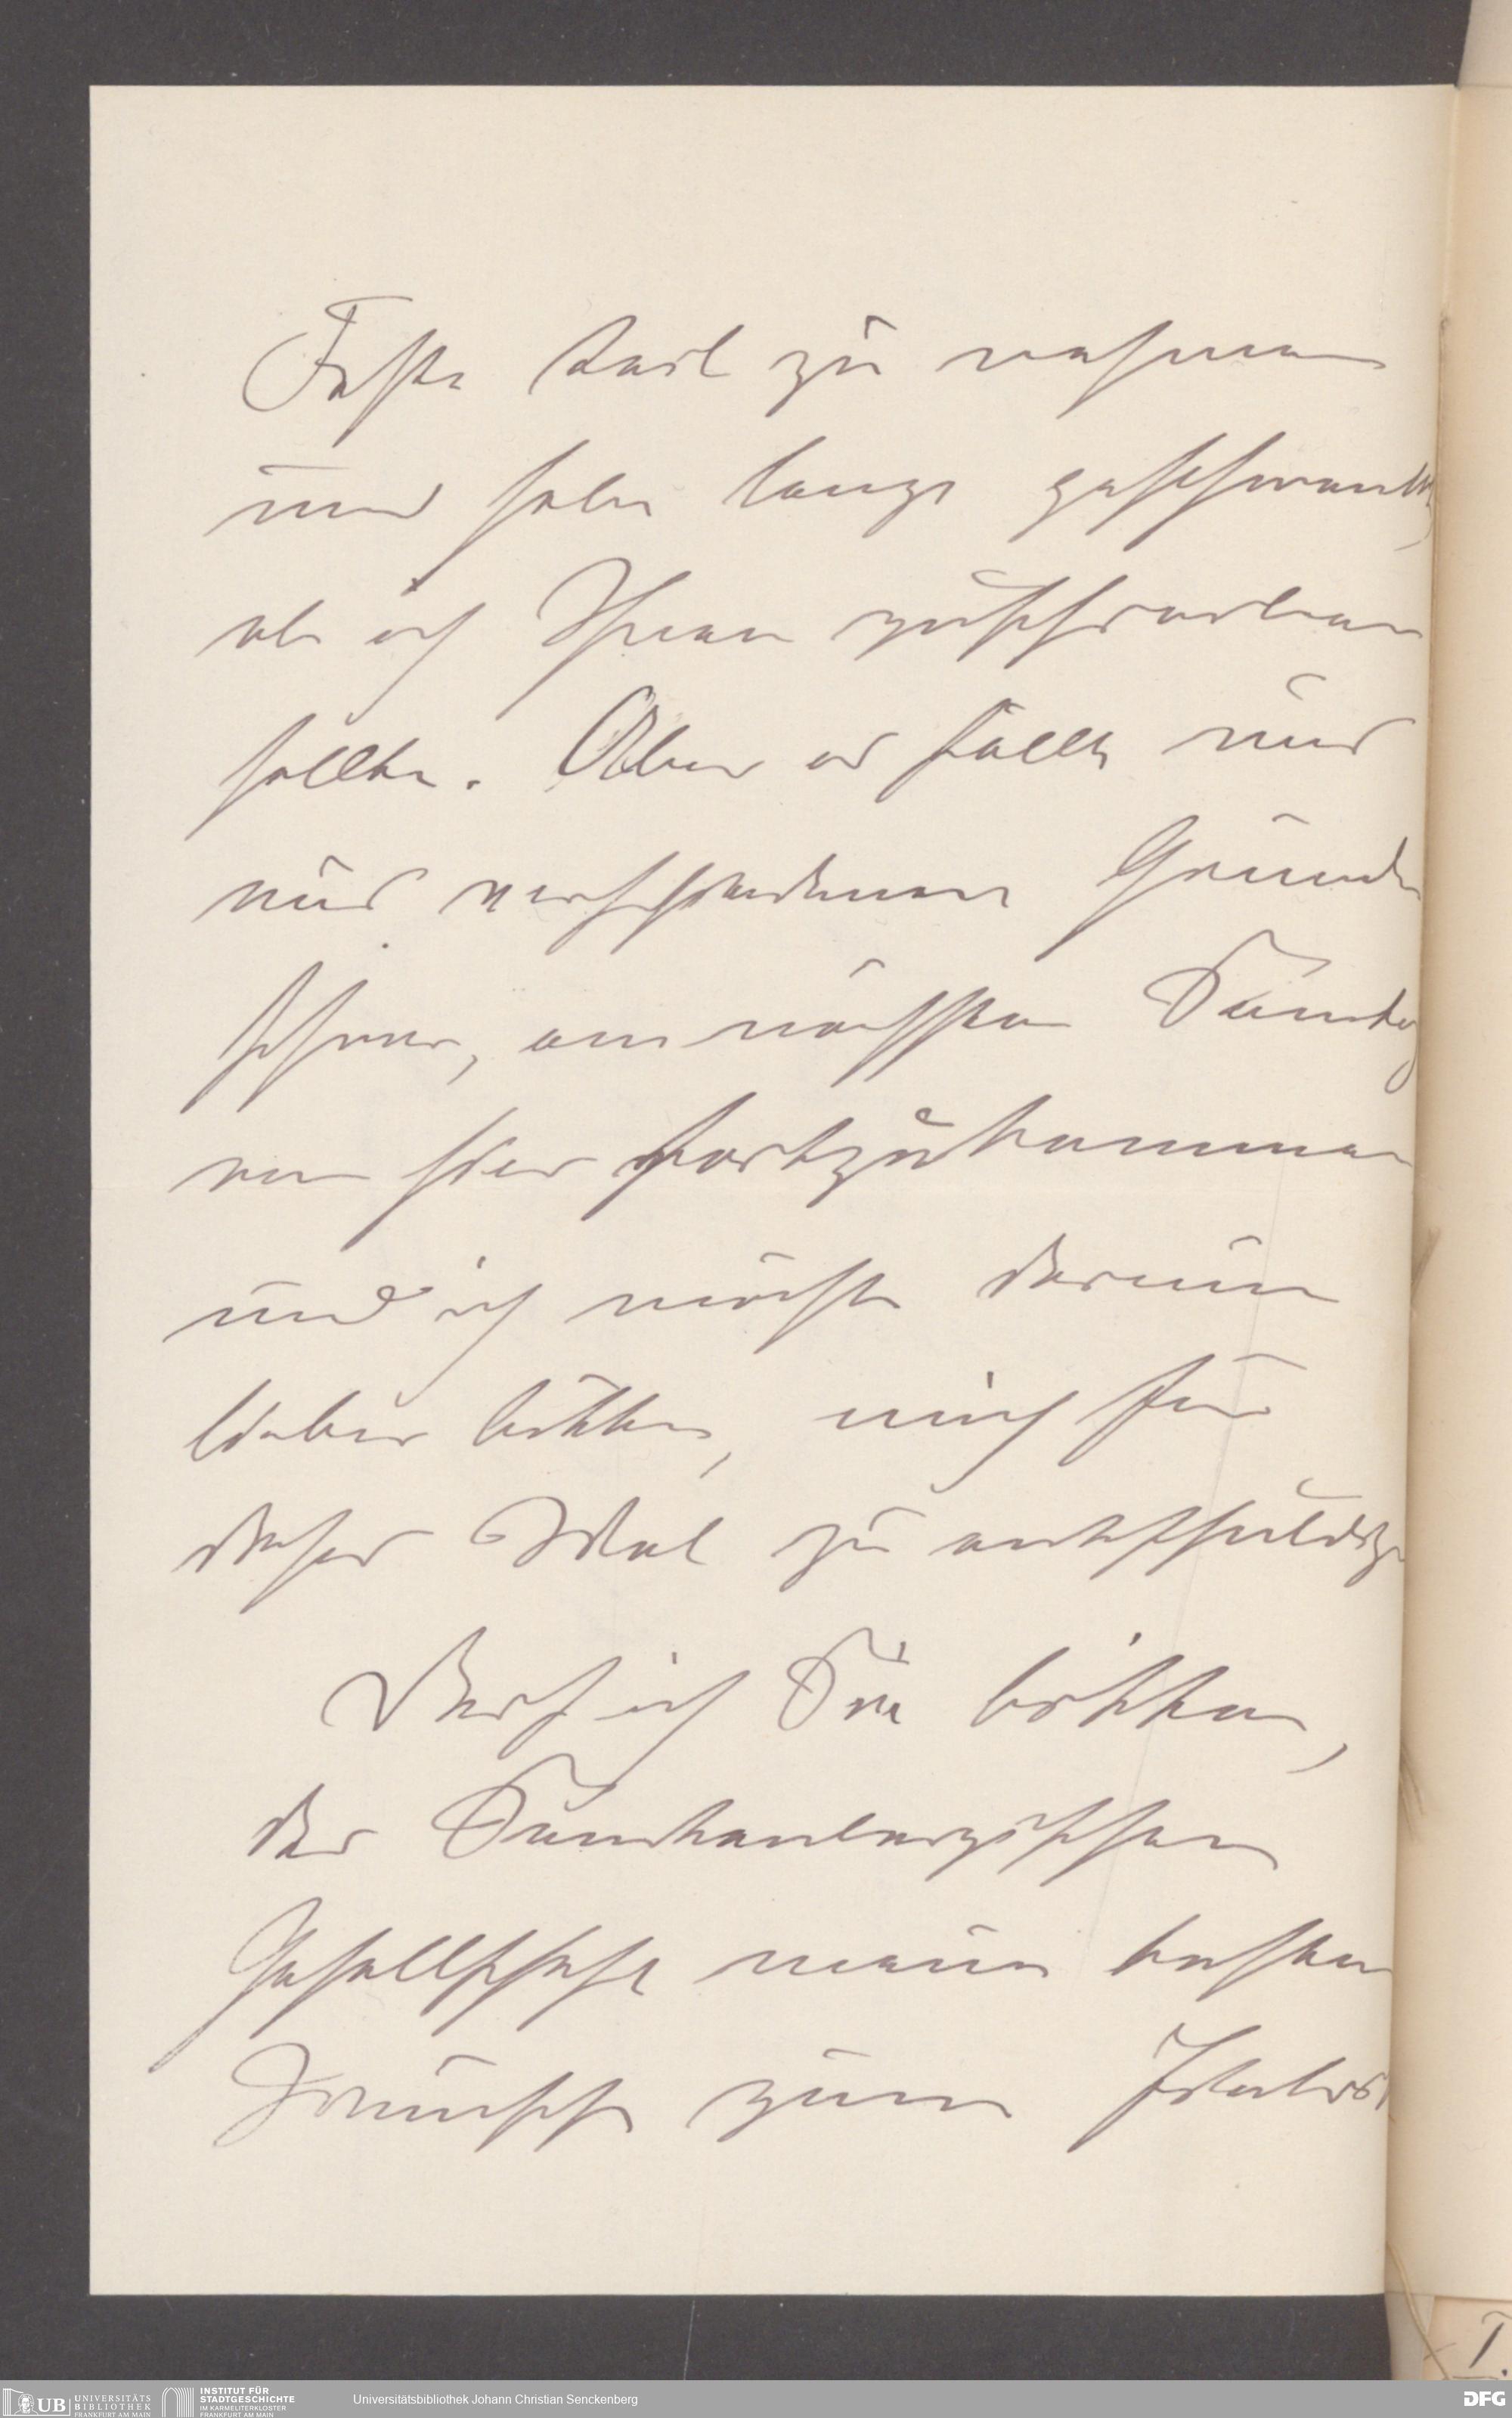 Feste teil zu nehmen
und habe lange geschwankt,
ob ich Ihnen zuschreiben
sollte. Aber es fällt mir
aus verschiedenen Gründen
schwer, am nächsten Sonntag
von hier fortzukommen
und ich möchte darum
lieber bitten, mich für
dieses Mal zu entschuldigen
Darf ich Sie bitten,
der Senckenbergischen
Gesellschaft meine besten
Wünsche zum
UB UNIVERSITÄTS BIBLIOTHEK FRANKFURT AM MAIN
INSTITUT FÜR STADTGESCHICHTE IM KARMELITERKLOSTER FRANKFURT AM MAIN
Universitätsbibliothek Johann Christian Senckenberg
DFG